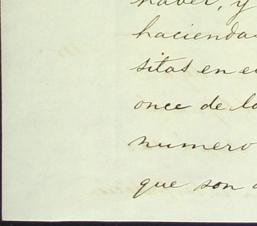 haber, y
hacienda
sitas en e
once de lo
numero
que son